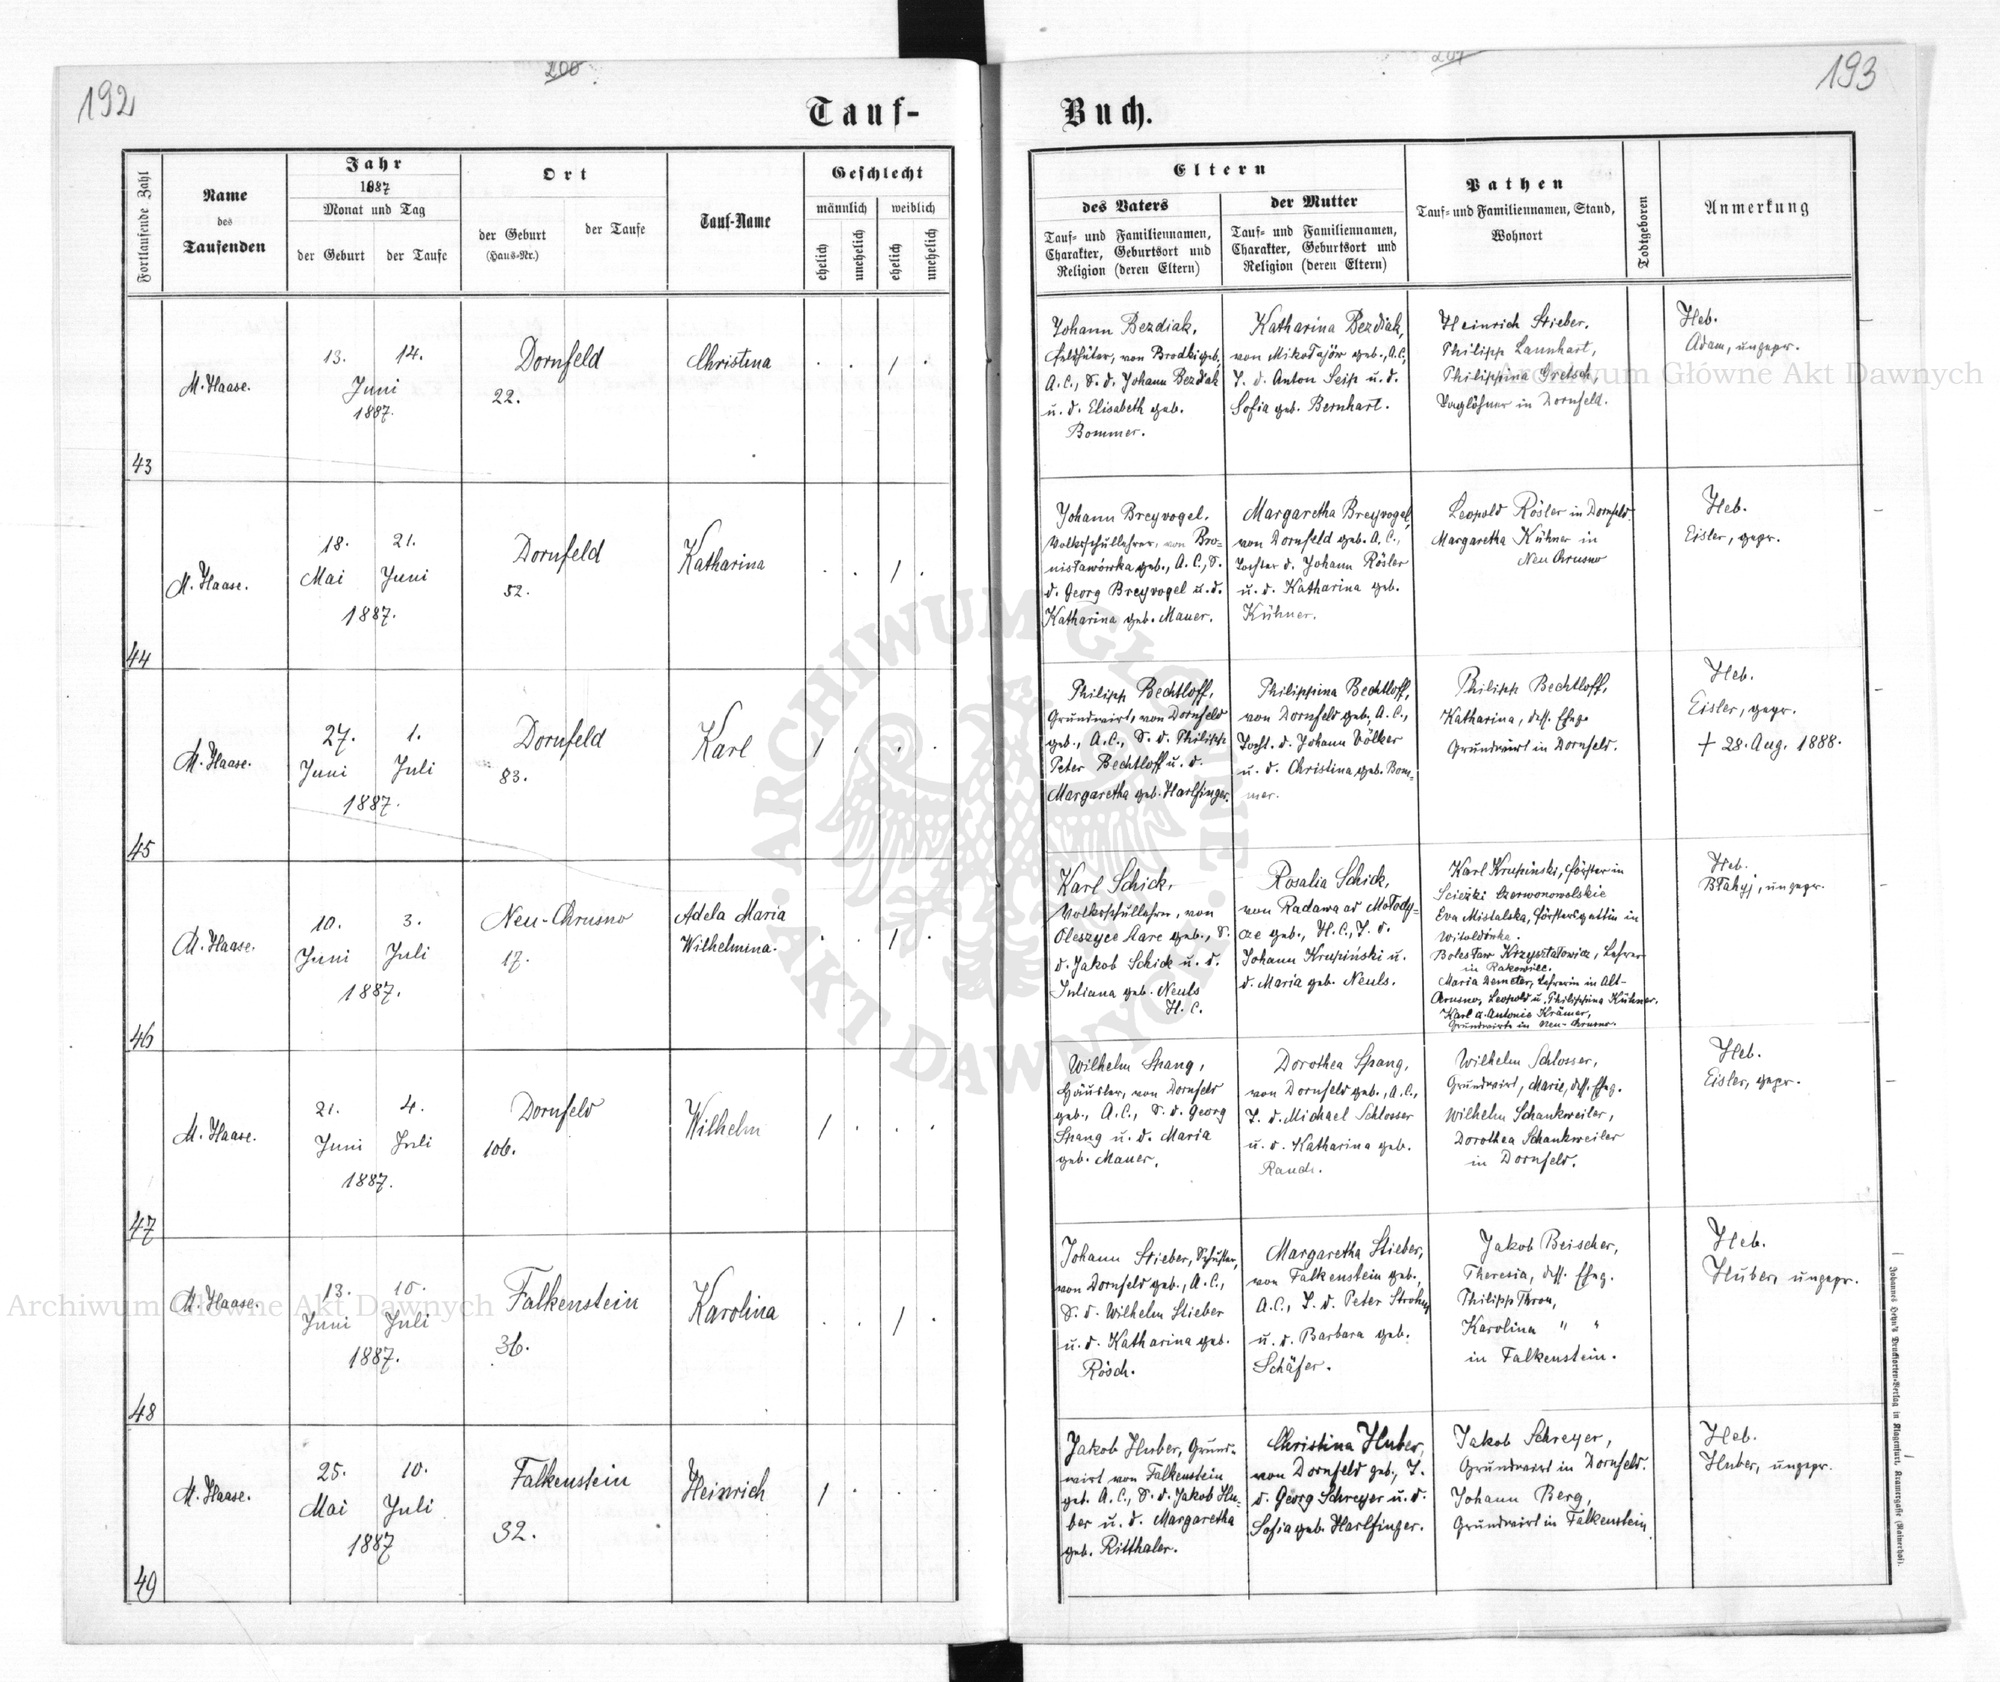 192
200
Tauf-
Fortlaufende Zahl
Name
des
Taufenden
Jahr
1887
Monat und Tag
der Geburt
der Taufe
Ort
der Geburt
(Haus-Nr.)
der Taufe
Tauf-Name
Geschlecht
männlich
weiblich
ehelich
unehelich
ehelich
unehelich
43
M. Haase.
13. 14.
Juni
1887.
Dornfeld
22.
Christina
. . / .
44
M. Haase.
18. 21.
Mai Juni
1887.
Dornfeld
52.
Katharina
. . / .
45
M. Haase.
27. 1.
Juni Juli
1887.
Dornfeld
83.
Karl
/ . . .
46
M. Haase.
10. 3.
Juni Juli
1887.
Neu-Chrusno
17.
Adela Maria
Wilhelmina.
. . / .
47
M. Haase.
21. 4.
Juni Juli
1887.
Dornfeld
106.
Wilhelm
/ . . .
48
M. Haase.
13. 10.
Juni Juli
1887.
Falkenstein
36.
Karolina
. . / .
49
M. Haase.
25. 10.
Mai Juli
1887
Falkenstein
32.
Heinrich
/ . . .
193
201
Buch.
Eltern
des Vaters
Tauf- und Familiennamen,
Charakter, Geburtsort und
Religion (deren Eltern)
der Mutter
Tauf- und Familiennamen,
Charakter, Geburtsort und
Religion (deren Eltern)
Pathen
Tauf- und Familiennamen, Stand,
Wohnort
Todtgeboren
Anmerkung
Johann Bezdiak,
Feldhüter, von Brodki geb.,
A.C., S. d. Johann Bezdiak
u. d. Elisabeth geb.
Bommer.
Katharina Bezdiak,
von Mikołajów geb., A.C.,
T. d. Anton Seip u. d.
Sofia geb. Bernhart.
Heinrich Stieber,
Philipp Launhart,
Philippina Gretsch,
Taglöhner in Dornfeld.
Heb.
Adam, ungepr.
Johann Breyvogel,
Volksschullehrer, von Bro-
nisławówka geb., A.C., S.
d. Georg Breyvogel u. d.
Katharina geb. Mauer.
Margaretha Breyvogel,
von Dornfeld geb. A.C.,
Tochter d. Johann Rösler
u. d. Katharina geb.
Kühner.
Leopold Rösler in Dornfeld.
Margaretha Kühner in
Neu Chrusno
Heb.
Eisler, gepr.
Philipp Bechtloff,
Grundwirt, von Dornfeld
geb., A.C., S. d. Philipp
Peter Bechtloff u. d.
Margaretha geb. Harlfinger.
Philippina Bechtloff,
von Dornfeld geb., A.C.,
Tocht. d. Johann Völker
u. d. Christina geb. Bom-
mer.
Philipp Bechtloff,
Katharina, dess. Eheg.
Grundwirt in Dornfeld.
Heb.
Eisler, gepr.
† 28. Aug. 1888.
Karl Schick,
Volksschullehrer, von
Oleszyce stare geb., S.
d. Jakob Schick u. d.
Juliana geb. Neuls
H.C.
Rosalia Schick,
von Radawa ad Mołody-
cze geb., H.C., T. d.
Johann Krupiński u.
d. Maria geb. Neuls.
Karl Krupiński, Förster in
Scieżki Czerwonowolskie
Eva Mistalska, Förstersgattin in
Witoldówka.
Bolesław Krzyształowicz, Lehrer
in Rakowiec.
Maria Demeter, Lehrerin in Alt-
Chrusno, Leopold u. Philippina Kühner.
Karl u. Antonie Krämer,
Grundwirte in Neu-Chrusno.
Heb.
Błahyj, ungepr.
Wilhelm Spang,
Häusler, von Dornfeld
geb., A.C., S. d. Georg
Spang u. d. Maria
geb. Mauer.
Dorothea Spang,
von Dornfeld geb., A.C.,
T. d. Michael Schlosser
u. d. Katharina geb.
Rauch.
Wilhelm Schlosser,
Grundwirt, Marie, dess. Eheg.
Wilhelm Schankweiler,
Dorothea Schankweiler
in Dornfeld.
Heb.
Eisler, gepr.
Johann Stieber, Schuster,
von Dornfeld geb., A.C.,
S. d. Wilhelm Stieber
u. d. Katharina geb.
Rösch.
Margaretha Stieber,
von Falkenstein geb.,
A.C., T. d. Peter Strohm
u. d. Barbara geb.
Schäfer.
Jakob Beischer,
Theresia, dess. Eheg.
Philipp Thron,
Karolina " "
in Falkenstein.
Heb.
Huber, ungepr.
Jakob Huber, Grund-
wirt von Falkenstein
geb. A.C., S. d. Jakob Hu-
ber u. d. Margaretha
geb. Ritthaler.
Christina Huber,
von Dornfeld geb., T.
d. Georg Schreyer u. d.
Sofia geb. Harlfinger.
Jakob Schreyer,
Grundwirt in Dornfeld.
Johann Berg,
Grundwirt in Falkenstein.
Heb.
Huber, ungepr.
Johannes Heyn's Drucksorten-Verlag in Klagenfurt, Kramergasse (Rainerhof).
Archiwum Główne Akt Dawnych
Archiwum Główne Akt Dawnych
ARCHIWUM GŁÓWNE
AKT DAWNYCH